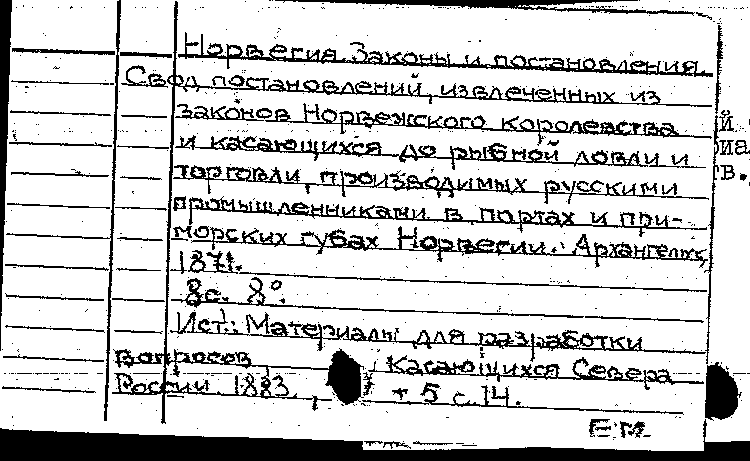 Норвегия. Законы и постановления.
Свод постановлений, извлеченных из
законов Норвежского королевства
и касающихся до рыбной ловли и
торговли, производимых русскими
промышленниками в портах и при-
морских губах Норвегии. Архангельск,
1871.
8с. 8°.
Ист.: Материалы для разработки
вопросов, касающихся Севера
России. 1883., т. 5 с. 14.
Е.М.